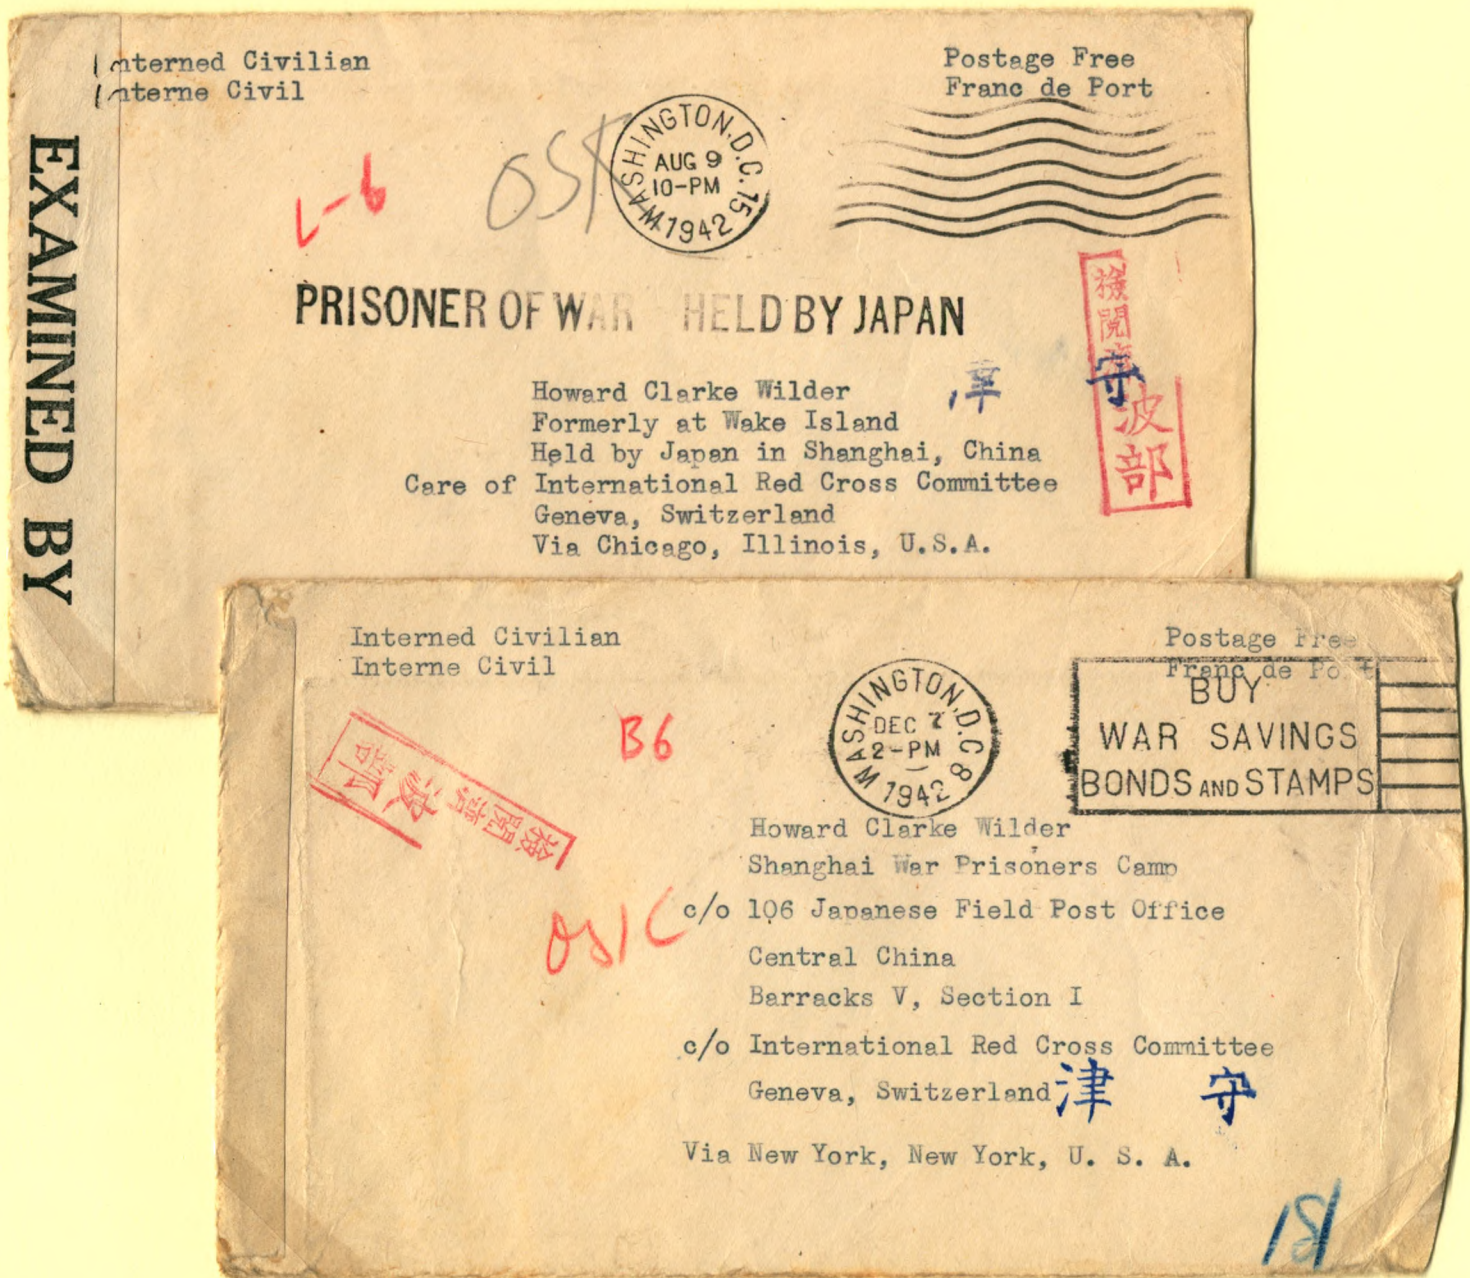 EXAMINED BY
Interned Civilian
Interne Civil
Postage Free
Franc de Port
WASHINGTON, D.C. 15
AUG 9
10-PM
1942
L-6
OSK
PRISONER OF WAR HELD BY JAPAN
検閲済
波部
Howard Clarke Wilder
津 守
Formerly at Wake Island
Held by Japan in Shanghai, China
Care of International Red Cross Committee
Geneva, Switzerland
Via Chicago, Illinois, U.S.A.
Interned Civilian
Interne Civil
Postage Free
Franc de Port
WASHINGTON, D.C. 8
DEC 7
2-PM
1942
BUY
WAR SAVINGS
BONDS AND STAMPS
B6
検閲済
波部
Howard Clarke Wilder
Shanghai War Prisoners Camp
OSK
c/o 106 Japanese Field Post Office
Central China
Barracks V, Section I
c/o International Red Cross Committee
Geneva, Switzerland
津 守
Via New York, New York, U. S. A.
181